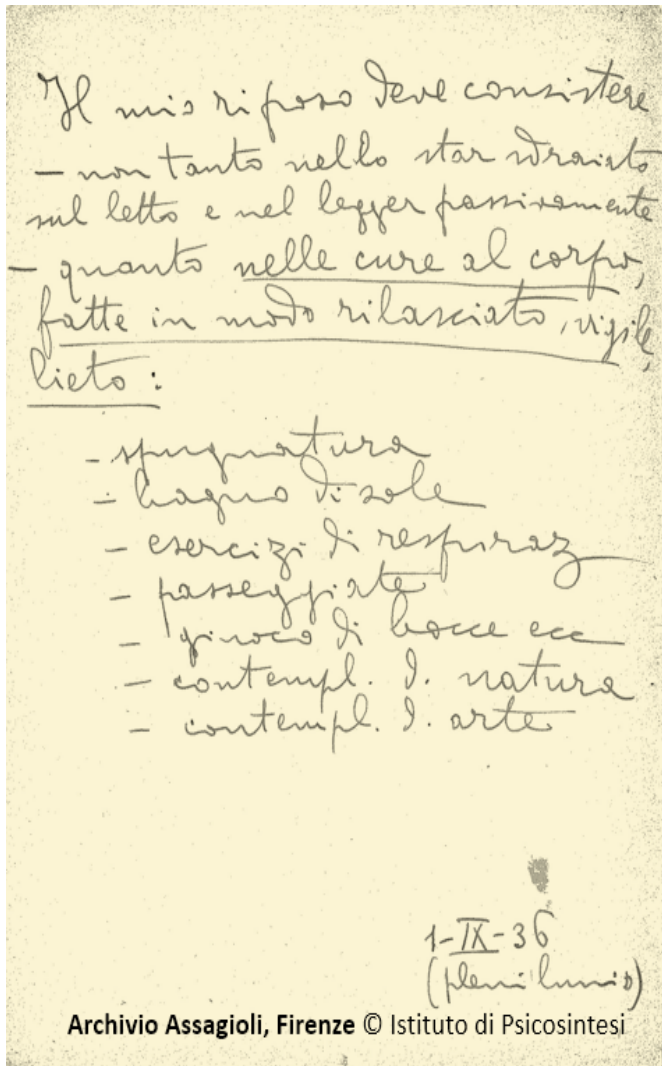 Il mio riposo deve consistere
– non tanto nello star sdraiato
sul letto e nel legger passivamente
– quanto nelle cure al corpo,
fatte in modo rilasciato, vigile,
lieto :
– spugnatura
– bagno di sole
– esercizi di respiraz
– passeggiate
– giuoco di bocce ecc
– contempl. d. natura
– contempl. d. arte
1-IX-36
(plenilunio)
Archivio Assagioli, Firenze © Istituto di Psicosintesi